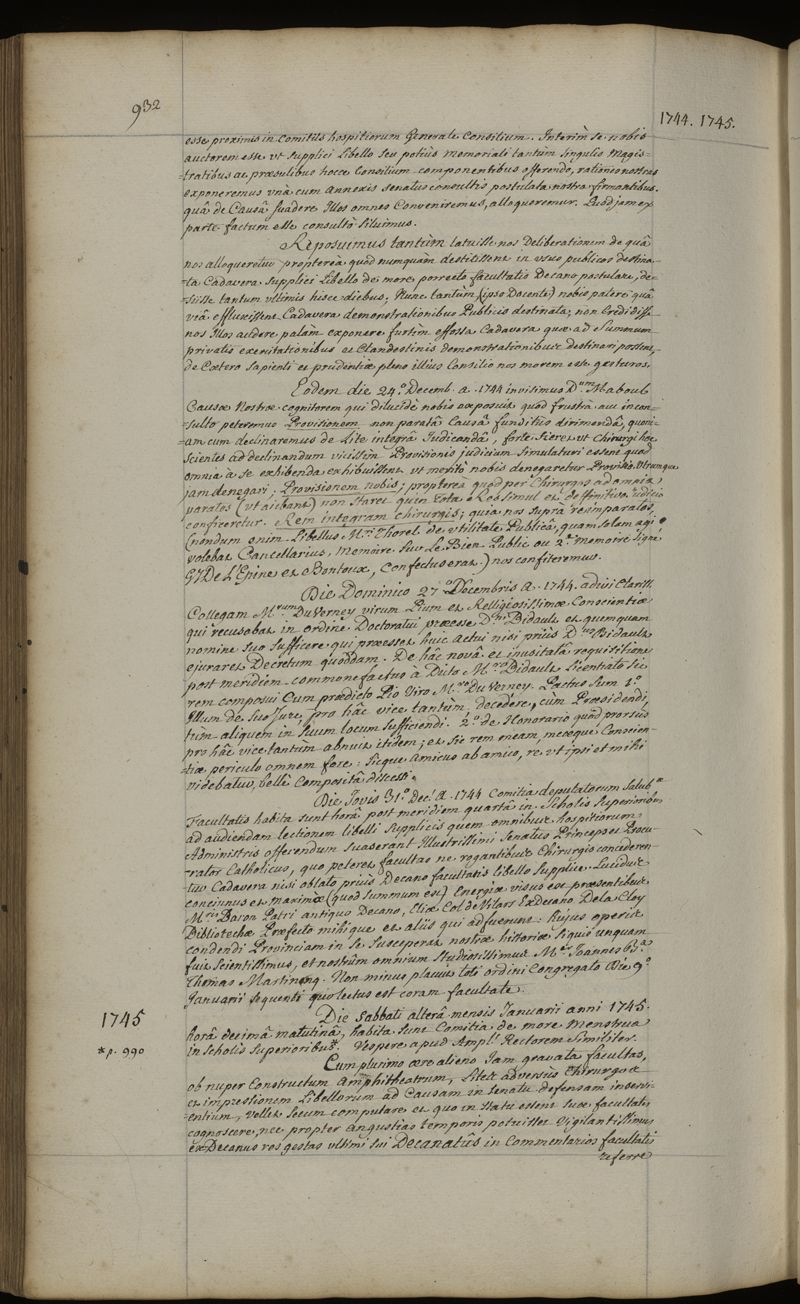 932
1744. 1745.
esse proximis in Comitiis hospitiorum Generale Consilium. Interim se nobis
auctorem esse ut supplici Libello seu potius memoriali tantùm singulis Magis=
=tratibus ac præsulibus hocce Consilium componentibus offerendo, rationes nostras
exponeremus unà cum annexis senatus consultis postulata nostra firmantibus.
quâ de Causâ suadere Illos omnes Conveniremus, alloqueremur. Quod jam ex
parte factum esse consultò siluimus.
Reposuimus tantùm latuisse nos Deliberationem de quâ
nos alloqueretur propterea quòd numquam destitissent in usus publicos destina=
=ta Cadavera supplici Libello de more porrecto facultatis Decano postulare, de=
siisse tantum ultimis hisce diebus; Nunc tantùm (ipso Docente) nobis patere quâ
viâ effluxissent Cadavera demonstrationibus Publicis destinata; non Credidisse
nos Illos audere palàm exponere furtim effossa Cadavera quæ ad summum
privatis exercitationibus et Clandestinis demonstrationibus destinari possent,
de Cætero sapienti et prudentiæ pleno illius Consilio nos morem esse gesturos.
Eodem die 24.° Decemb. a. 1744 invisimus D.num Maboul
Causæ Nostræ cognitorem qui dilucidè nobis exposuit quod frustrà aut incon=
=sultò peteremus Provisionem non paratâ Causâ funditùs dirimendâ, quoni=
=am cum declinaremus de Lite integrâ Judicandâ, fortè fieret ut Chirurgi hæc
scientes ad declinandum vicissim Provisionis judicium simulaturi essent quod
omnia à se exhibenda exhibuissent ut meritò nobis denegaretur Provisio. Utrumque
jam denegari; Provisionem nobis; propterea quòd per Chirurgos ad omnia
paratos (ut aiebant) non staret quin tota res simul et definitivo Judicio
conficeretur. Rem integram chirurgis; quia nos supra rem imparatos,
(nondum enim Libellus M.ri Thorel de utilitate Publicâ, quam solam agi
volebat Cancellarius, memoire sur Le Bien Public ou 2.e memoire signé
G. J. De L'Epine et Bontoux, confectus erat) nos confiteremur.
Die Dominico 27.° Decembris a. 1744. adivi Clariss.
Collegam M.rum DuVerney virum Pium et Relligiosissimæ Conscientiæ
qui recusabat in ordine Doctoratui præesse D.ni Bidault et quemquam
nomine suo sufficere qui præesset huic actui nisi priùs D.nus Bidault
ejuraret Decretum quoddam. De hâc novâ et inusitatâ requisitione
post meridiem commonefactus à Dicto M.ro Bidault Licentiato sic
rem composui Cum prædicto Pio Viro M.ro DuVerney. Pactus sum 1.°
Illum de suo Jure, pro hâc vice tantùm, decedere, cum Præsidendi,
tùm aliquem in suum locum sufficiendi. 2.° de Honorario quòd prorsùs
pro hâc vice tantum abnuit itidem; et sic rem meam, meoque Conscien=
=tiæ periculo omnem fore: sicque amicus ab amico, re ut ipsi et mihi
videbatur, bellè compositâ discessi.
Die Jovis 31.° Dec. a. 1744 Comitia deputatorum Salub.æ
Facultatis habita sunt horâ post meridiem quartâ in Scholis Superioribus
ad audiendam lectionem libelli supplicis quem omnibus hospitiorum
Administris offerendum suaserant Illustrissimi Senatûs Princeps et Procu=
=rator Catholicus, quo peteret facultas ne rogantibus Chirurgis concederen=
=tur Cadavera nisi oblato priùs Decano facultatis libello supplice. Lucidus
concinnus et maximæ (quod summum est) Energiæ visus est præsentibus
M.ris Baron Patri antiquo Decano, Eliæ Col de Vilars Exdecano DeLa Cloy
Bibliothecæ Præfecto mihique et aliis qui adfuerunt: hujus operis
condendi Provinciam in se susceperat nostræ historiæ siquis unquam
fuit scientissimus, et nostrûm omnium studiosissimus M.er Joannes B.ta
Thomas Martinenq. Non minùs placuit toti ordini Congregato Die 9.°
Januarii sequentis quo lectus est coram facultate.
1745
Die Sabbati alterâ mensis Januarii anni 1745.
horâ decimâ matutinâ, habita sunt Comitia de more Menstrua
* p. 990
in Scholis Superioribus*. Vespere apud Ampl. Rectorem Similiter.
Cum plurimo ære alieno Jam gravata facultas,
ob nuper constructum amphitheatrum, Lites adversùs Chirurgos
et impressionem Libellorum ad Causam in Senatu defensam inservi=
=entium, vellet secum computare et quo in statu essent suæ facultatis
cognoscere, nec propter angustias temporis potuisset vigilantissimus
exDecanus res gestas ultimi sui Decanatûs in Commentarios facultatis
referre